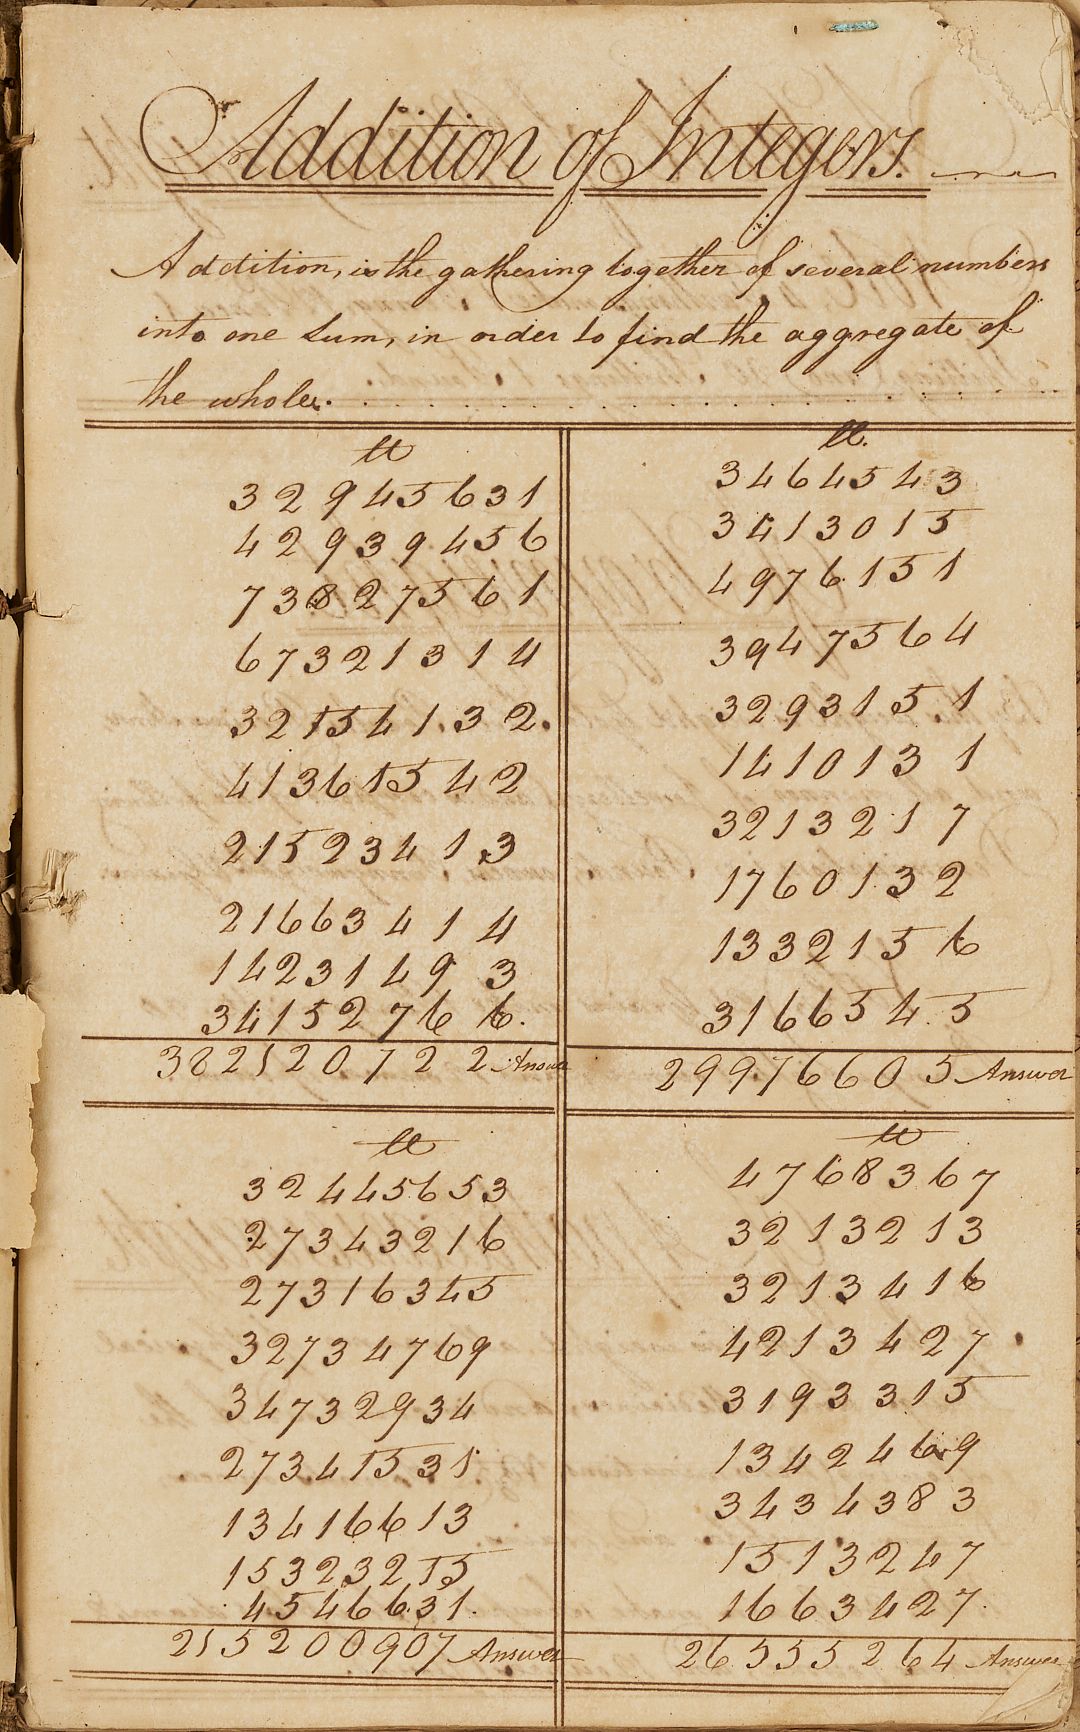 Addition of Integers.
Addition, is the gathering together of several numbers
into one Sum, in order to find the aggregate of
the whole.
lb
32945631
42939456
73827561
67321314
32154132.
41361542
21523413
21663414
14231493
34152766.
382120722 Answer
lb.
3464543
3413015
4976151
3947564
3293151
1410131
3213217
1760132
1332156
3166545
29976605 Answer
lb
32445653
27343216
27316345
32734769
34732934
27341531
13416613
15323215
4546631.
215200907 Answer
lb
4768367
3213213
3213416
4213427
3193315
1342469
3434383
1513247
1663427.
26555264 Answer